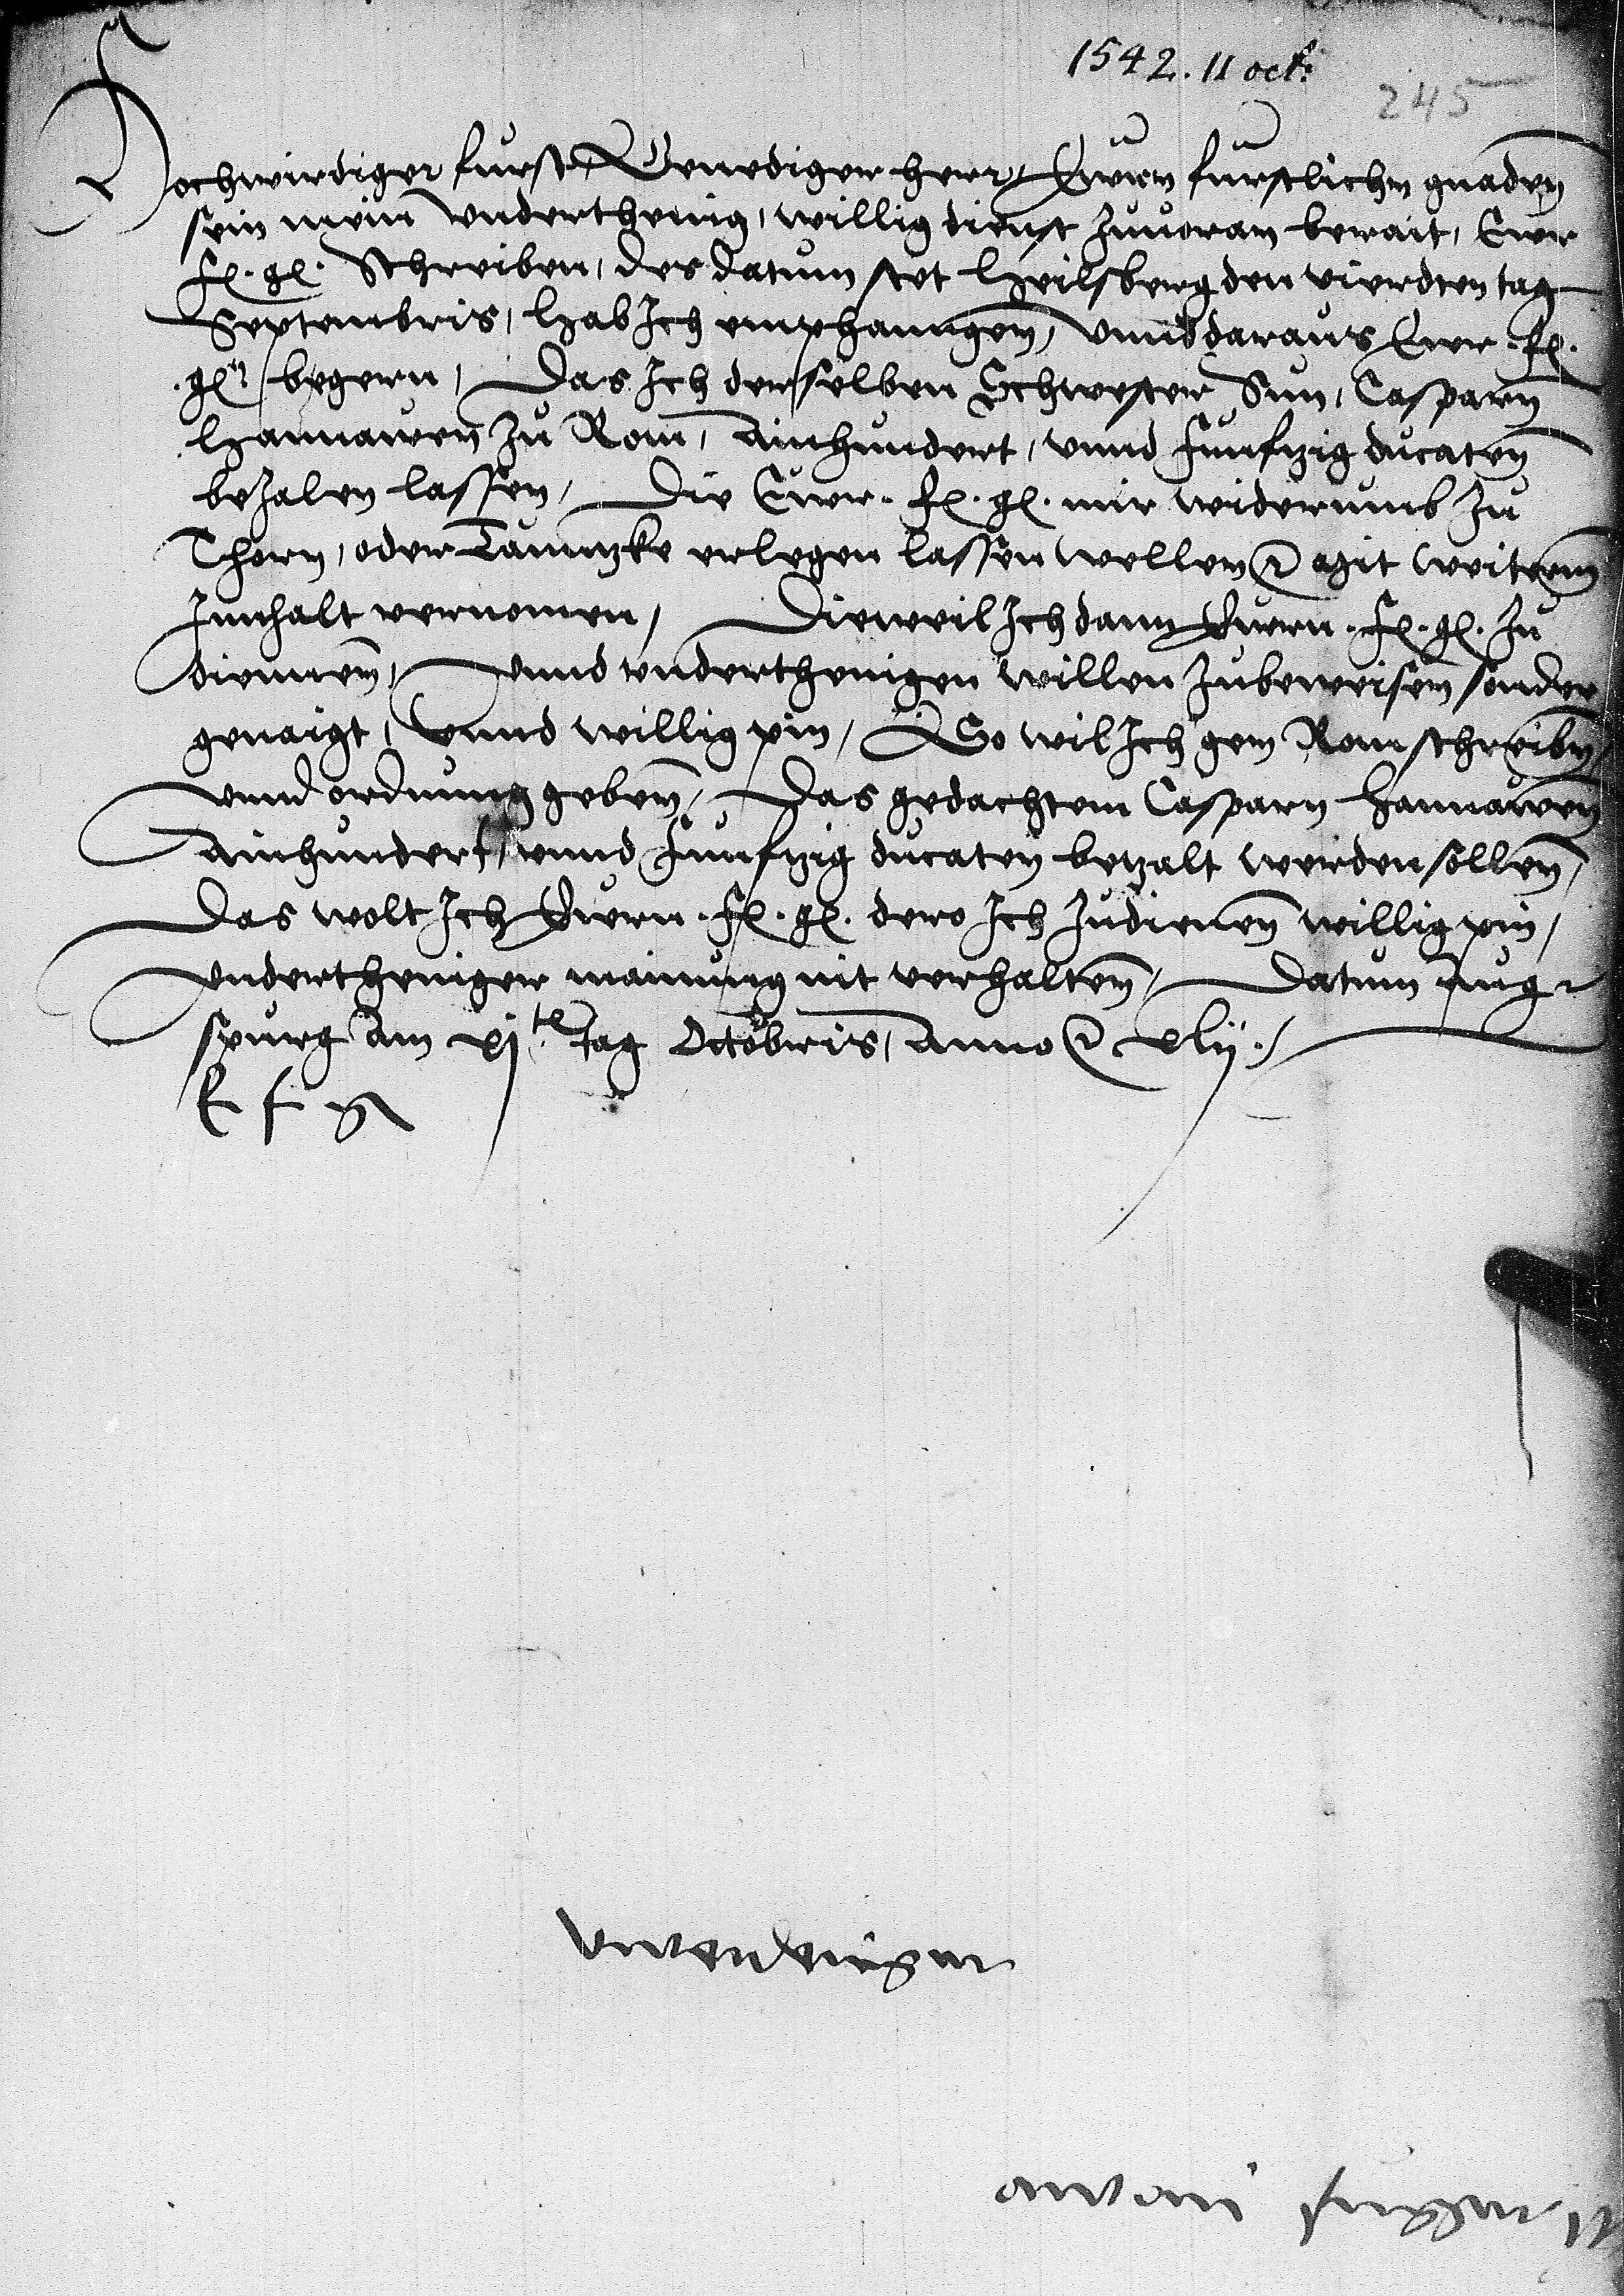 1542. 11 oct:
245
Hochwirdiger furst, Genediger herr, Ewrn furstlichen gnaden
sein mein underthenig, willig dienst zuuoran berait, Ewr
fl. gl. Schreiben, des datum stet Heilsberg den vierdten tag
Septembris, hab Ich emphanngen, unnd daraus Ewr. fl.
.gln begern, Das Ich derselben Schwester Sun, Casparn
Hannawen zu Rom, Ainhundert, unnd funfzig ducaten
bezalen lassen, Die Ewr. fl. gl. mir widerumb zu
Thorn, oder Danntzke erlegen lassen wellen etc mit weiterm
Innhalt vernomen, Dieweil Ich dann Ewrn. fl. gl. zu
diennen, unnd underthenigen willen zubeweisen sonder
genaigt, unnd willig pin, So wil Ich gen Rom schreiben,
unnd ordnung geben, Das gedachtem Casparn Hannawen
Ainhundert, unnd funfzig ducaten betzalt werden sollen,
Das wolt Ich Ewrn. fl. gl. dero Ich zudienen willig pin,
undertheniger mainung nit verhalten, Datum Aug-
spurg am xj.te tag Octobris, Anno etc xlij.
E f g